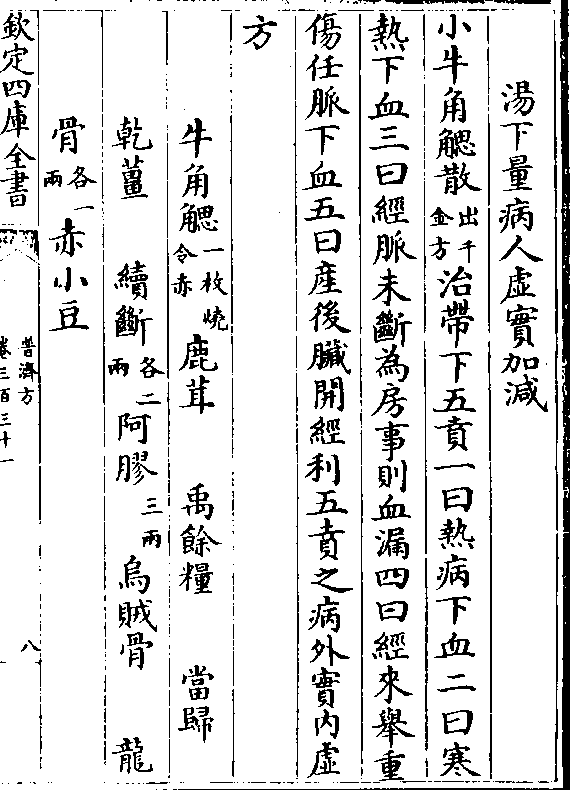 湯下量病人虛實加減
小牛角䚡散出千金方治帶下五賁一曰熱病下血二曰寒
熱下血三曰經脈未斷為房事則血漏四曰經來舉重
傷任脈下血五曰産後臟開經利五賁之病外實内虛
方
牛角䚡一枚燒令赤 鹿茸 禹餘糧 當歸
乾薑 續斷各二兩 阿膠三兩 烏賊骨 龍
骨各一兩 赤小豆
欽定四庫全書
普濟方
卷三百三十一
八